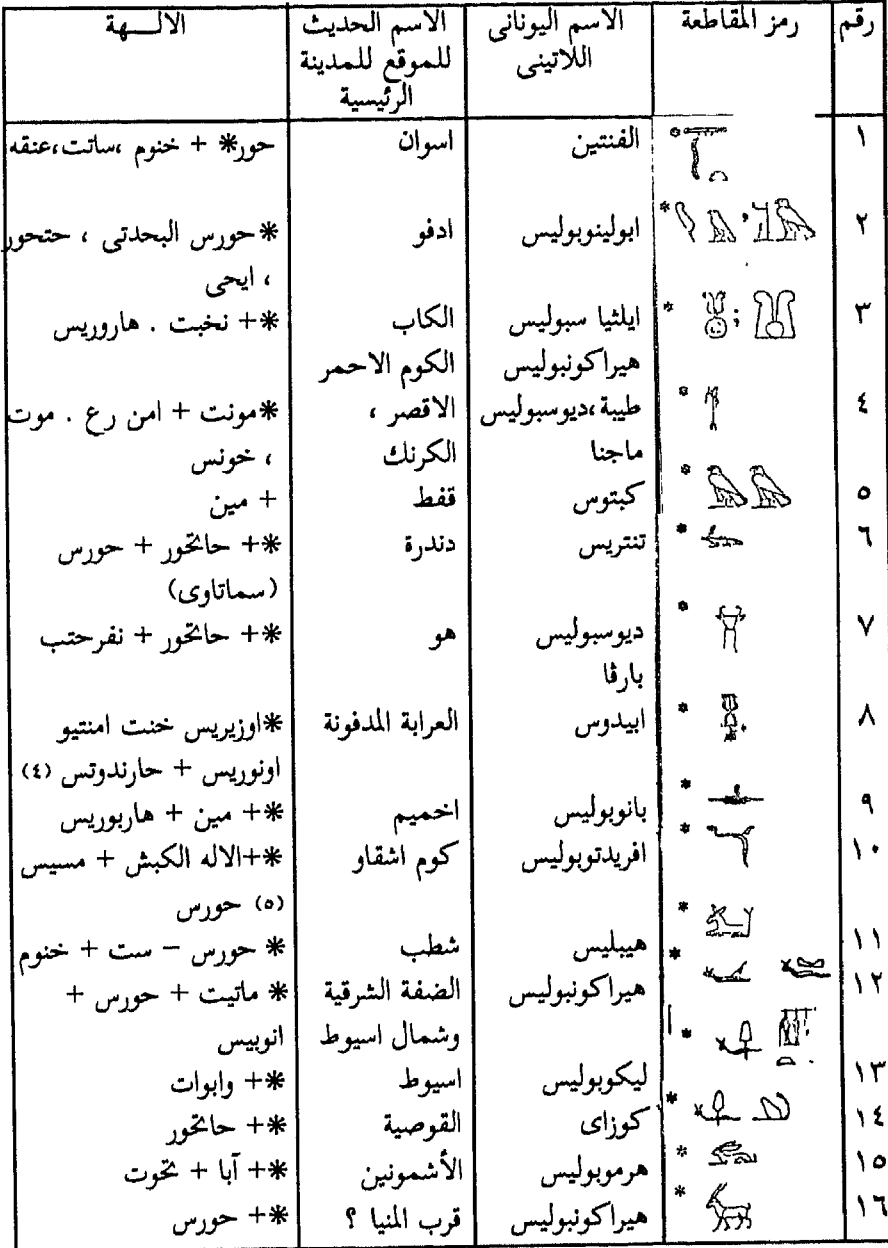 رقم رمز المقاطعة الاسم اليونانى الاسم الحديث الالـــهة
اللاتينى للموقع للمدينة
الرئيسية
١ الفنتين اسوان حور* + خنوم ،ساتت،عنقه
٢ ابولينوبوليس ادفو *حورس البحدتى ، حتحور
، ايحى
٣ ايلثيا سبوليس الكاب *+ نخبت . هاروريس
هيراكونبوليس الكوم الاحمر
٤ طيبة،ديوسبوليس الاقصر ، *مونت + امن رع . موت
ماجنا الكرنك ، خونس
٥ كبتوس قفط + مين
٦ تنتريس دندرة *+ حاتحور + حورس
(سماتاوى)
٧ ديوسبوليس هو *+ حاتحور + نفرحتب
بارڤا
٨ ابيدوس العرابة المدفونة *اوزيريس خنت امنتيو
اونوريس + حارندوتس (٤)
٩ بانوبوليس اخميم *+ مين + هاربوريس
١٠ افريدتوبوليس كوم اشقاو *+الاله الكبش + مسيس
(٥) حورس
١١ هيبليس شطب * حورس – ست + خنوم
١٢ هيراكونبوليس الضفة الشرقية * ماتيت + حورس +
وشمال اسيوط انوبيس
١٣ ليكوبوليس اسيوط *+ وابوات
١٤ كوزاى القوصية *+ حاتحور
١٥ هرموبوليس الأشمونين *+ آبا + تحوت
١٦ هيراكونبوليس قرب المنيا ؟ *+ حورس